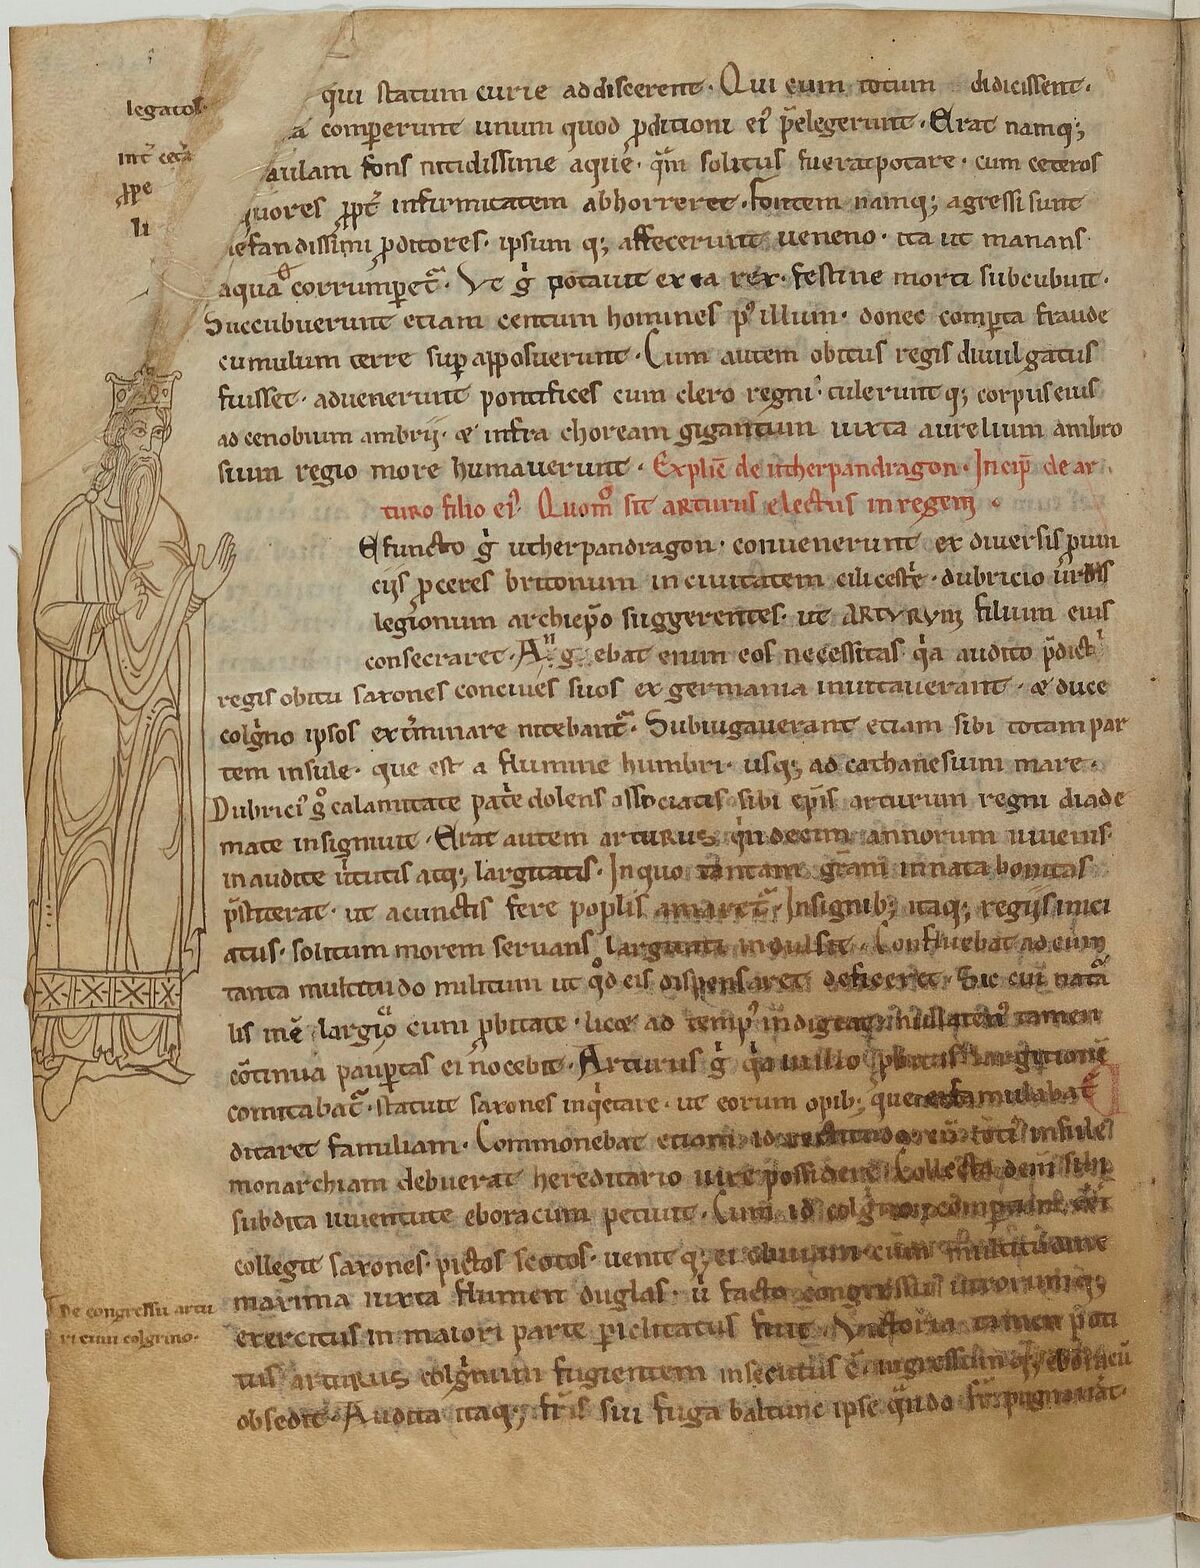 legatos.
int cet̃a
ꝓpe
li
qui statum curie addiscerent. Qui cum totum didicissent.
a comperunt unum quod ꝓditioni ei᾽ p̃elegerunt. Erat namq;
aulam fons nitidissime aque. q̃m solitus fuerat potare. cum ceteros
quores ꝓpt̃ infirmitatem abhorreret. Fontem namq; agressi sunt
nefandissimi ꝓditores. ipsum q; affecerunt ueneno. ita ut manans
aqua corrumꝑet᷑. Vt g̾ potauit ex ea rex. festine morti subcubuit.
Succubuerunt etiam centum homines p᾽ illum. donec comꝑta fraude
cumulum terre suꝑ apposuerunt. Cum autem obitus regis diuulgatus
fuisset. aduenerunt pontifices cum clero regni. tulerunt q; corpus eius
ad cenobium ambrij. & infra choream gigantum iuxta aurelium ambro
sium regio more humauerunt. Explic̃ de utherpandragon. Incip̃ de ar
turo filio ei᾽. Quom̊ sit arturus electus in regem.
Efuncto g̾ utherpandragon. conuenerunt ex diuersis ꝓuin
ciis ꝓceres britonum in ciuitatem cilicest̃e. dubricio urbis
legionum archiep̃o suggerentes. ut ARTVRVM filium eius
consecraret. A g ebat enim eos necessitas q̾a audito p̃dict̾
regis obitu saxones conciues suos ex germania inuitauerant. & duce
colg̾no ipsos ext̾minare nitebant᷑. Subiugauerant etiam sibi totam par
tem insule. que est a flumine humbri. usq; ad cathanesium mare.
Dubrici᾽ g̊ calamitate pat̃e dolens associatis sibi ep̃is arturum regni diade
mate insigniuit. Erat autem arturus q̾ndecim annorum iuuenis
inaudite ũtutis atq; largitatis. In quo tantam gr̃am innata bonitas
p̃stiterat. ut a cunctis fere poplis amaret᷑. Insignib; itaq; regiis inici
atus. solitum morem seruans largitati indulsit. Confluebat ad eum
tanta multitudo militum ut q̊d eis dispensaret deficeret. Sic cui nat᷑a
lis inẽ largio cum ꝓbitate. licet ad temp᾽ indigeat nullaten᾽ tamen
cõtinua pauꝑtas ei nocebit. Arturus g̾ q̾a in illo ꝓbitas largitionẽ
comitabat᷑. statuit saxones inq̾etare. ut eorum opib; que ei famulabat᷑
ditaret familiam. Commonebat etiam id rectitudo cũ toti᾽ insule
monarchiam debuerat hereditario iure possidere. Collecta dein sibi
subdita iuuentute eboracum petiuit. Cum id colg̾no comꝑtum
collegit saxones. pictos scotos. uenit q; ei obuiam cum multitudine
maxima iuxta flumen duglas. ũ facto congressu utrorumq;
exercitus in maiori parte ꝑiclitatus fuit. Victoria tamen poti
tus arturus colg̾num fugientem insecutus ẽ. ingressum q; eboracũ
obsedit. Audita itaq; fr̃is sui fuga baldulf᾽
De congressu artu
ri cum colgrino.